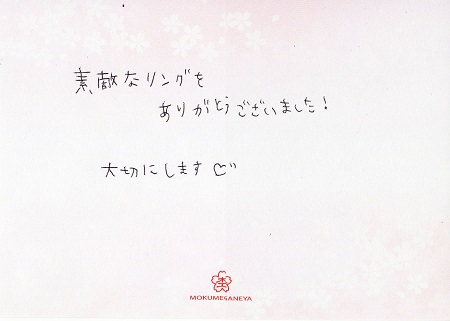 素敵なリングを
ありがとうございました!
大切にします♡
杢
MOKUMEGANEYA